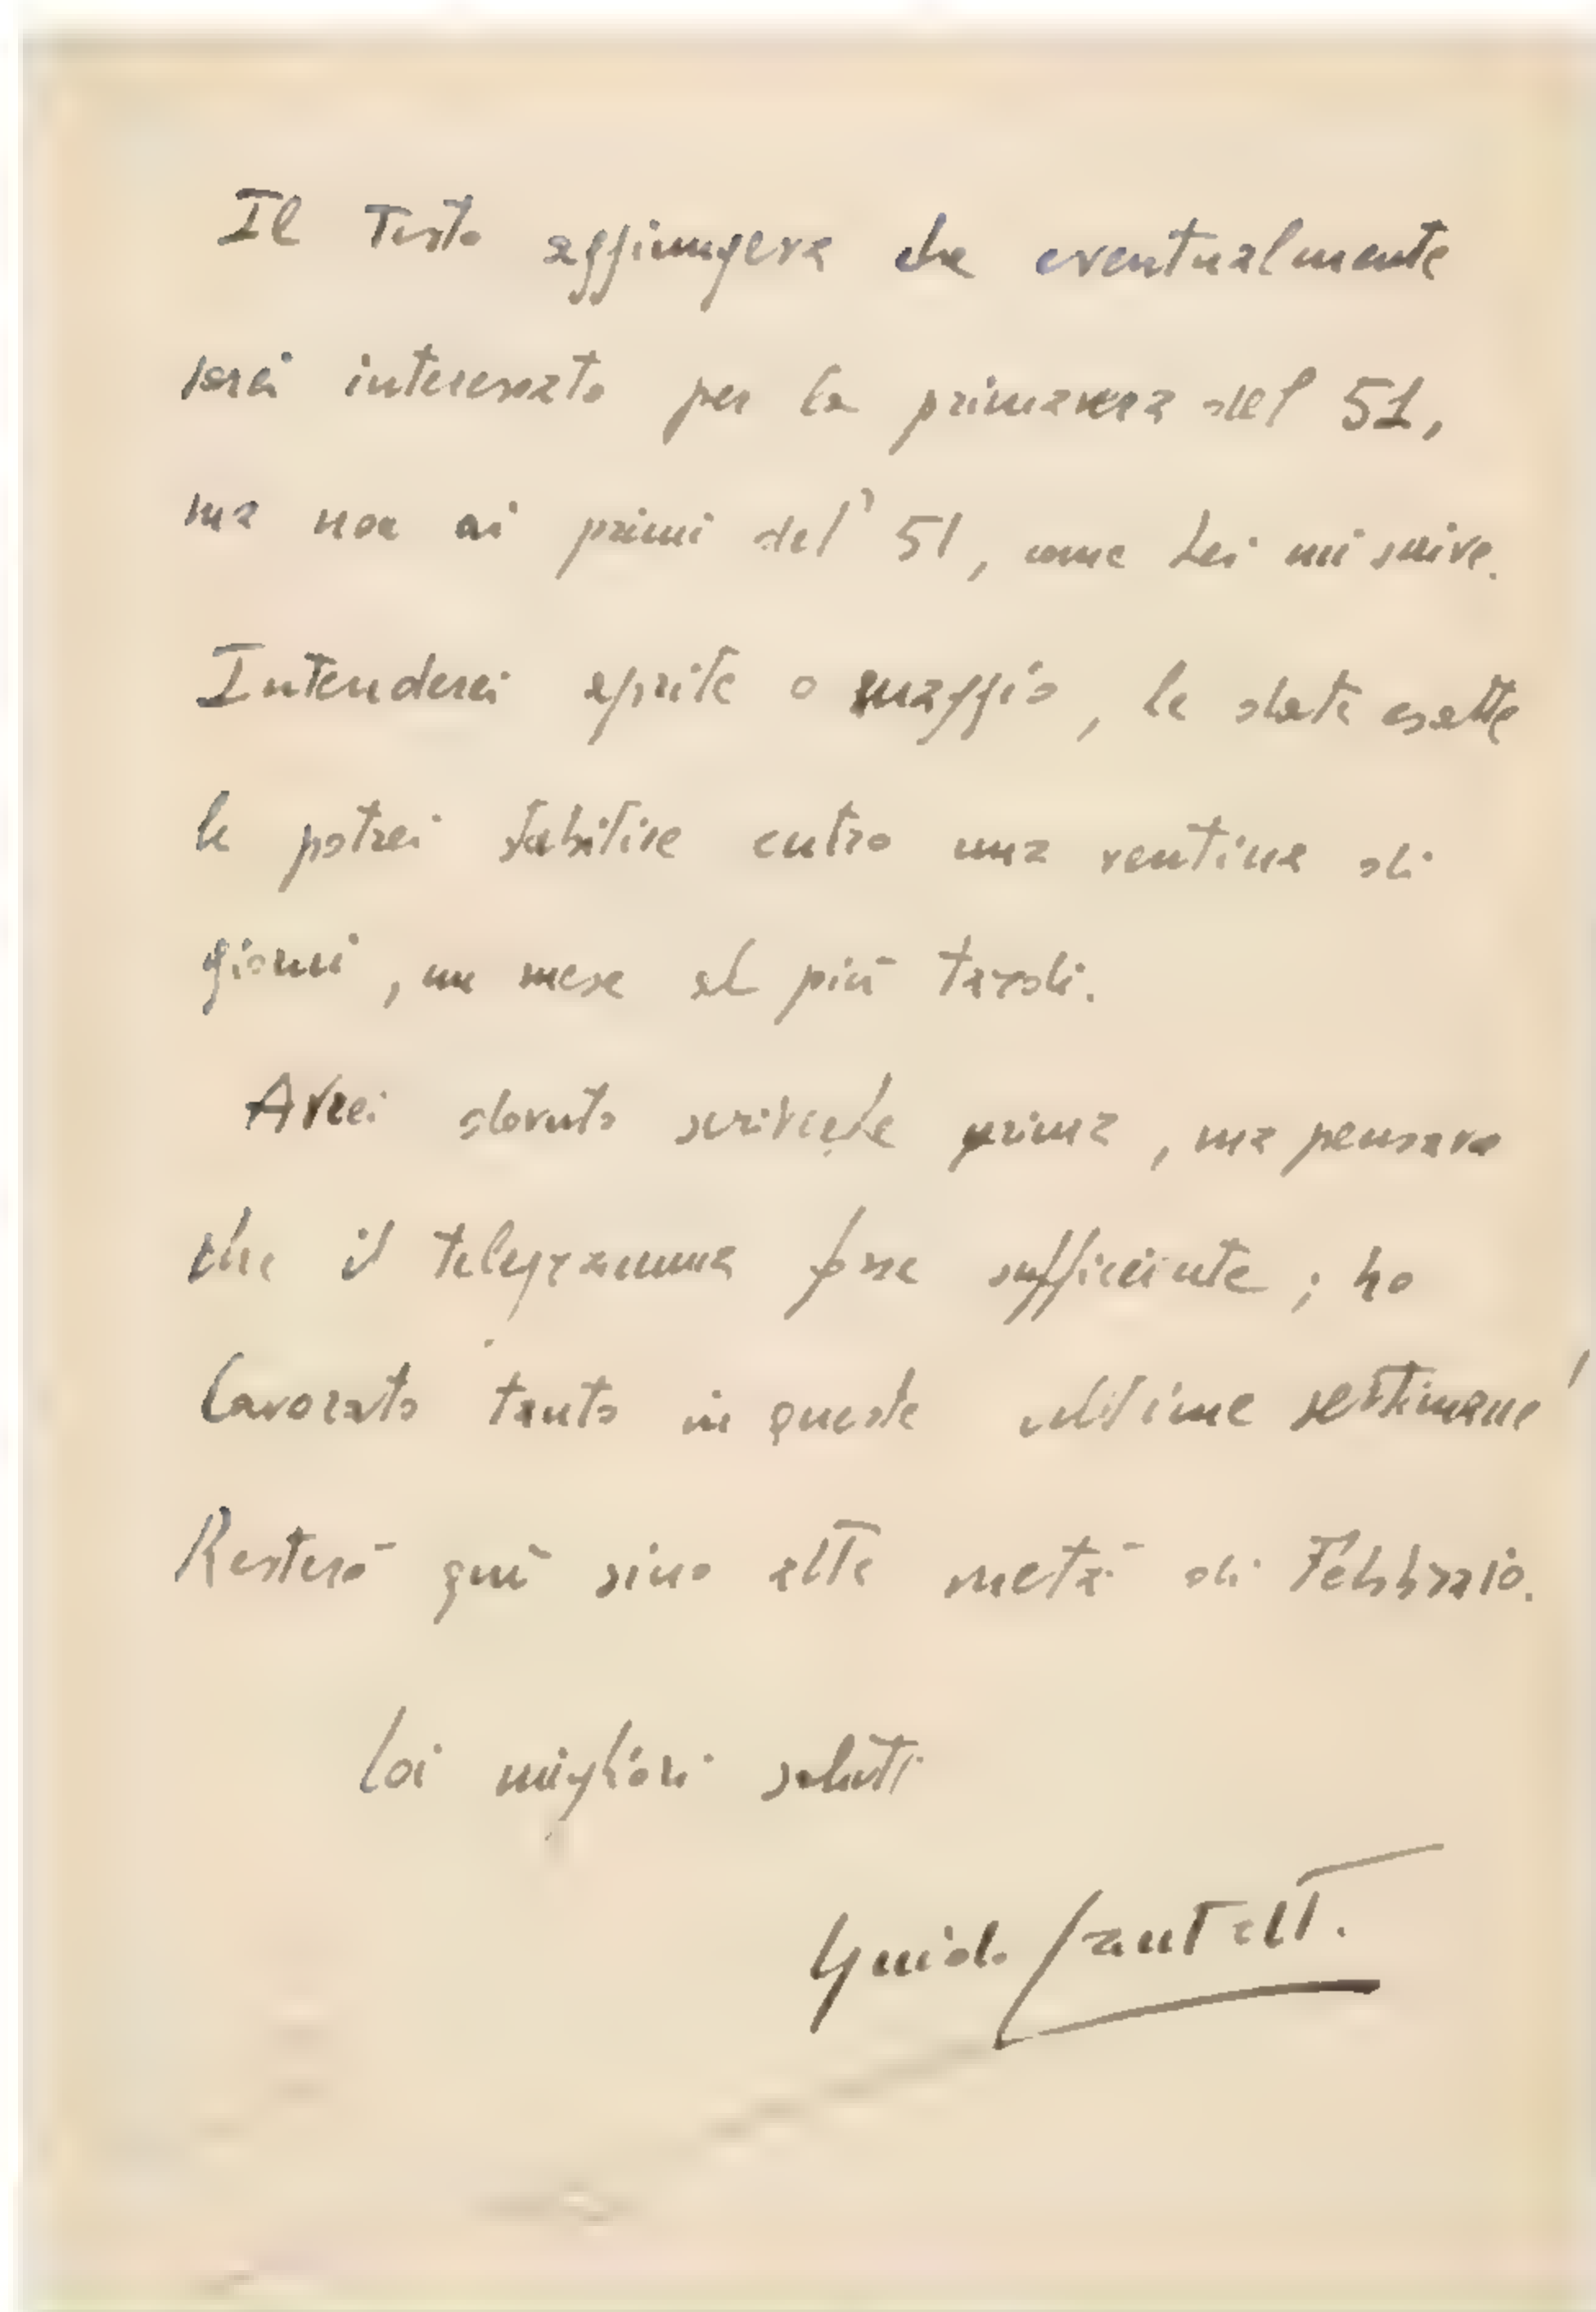 Il Testo aggiungeva che eventualmente
sarei interessato per la primavera del 51,
ma non ai primi del' 51, come Lei mi scrive.
Intenderei aprile o maggio, le date esatte
le potrei stabilire entro una ventina di
giorni, un mese al più tardi.
Avrei dovuto scriverle prima, ma pensavo
che il telegramma fosse sufficiente; ho
lavorato tanto in queste ultime settimane!
Resterò quì sino alla metà di Febbraio.
Coi migliori saluti
Guido Cantelli